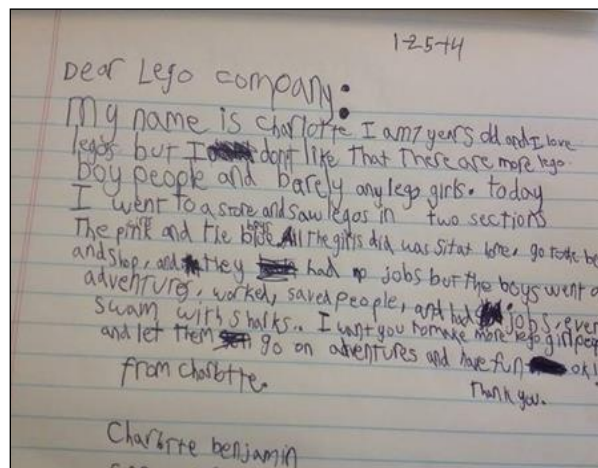 1-25-14
Dear Lego company:
My name is Charlotte I am 7 years old and I love
legos but I dont like that there are more lego
boy people and barely any lego girls. today
I went to a store and saw legos in two sections
The pink and the blue boys. All the girls did was sit at home, go to the be
and shop, and they had no jobs but the boys went o
adventures, worked, saved people, and had jobs, even
swam with sharks.. I want you to make more lego girl peop
and let them go on adventures and have fun ok!
from Charlotte.
Thank you.
Charlotte benjamin